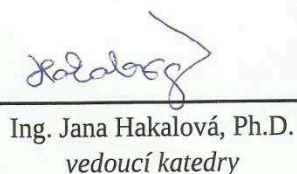 Hakalová
Ing. Jana Hakalová, Ph.D.
vedoucí katedry